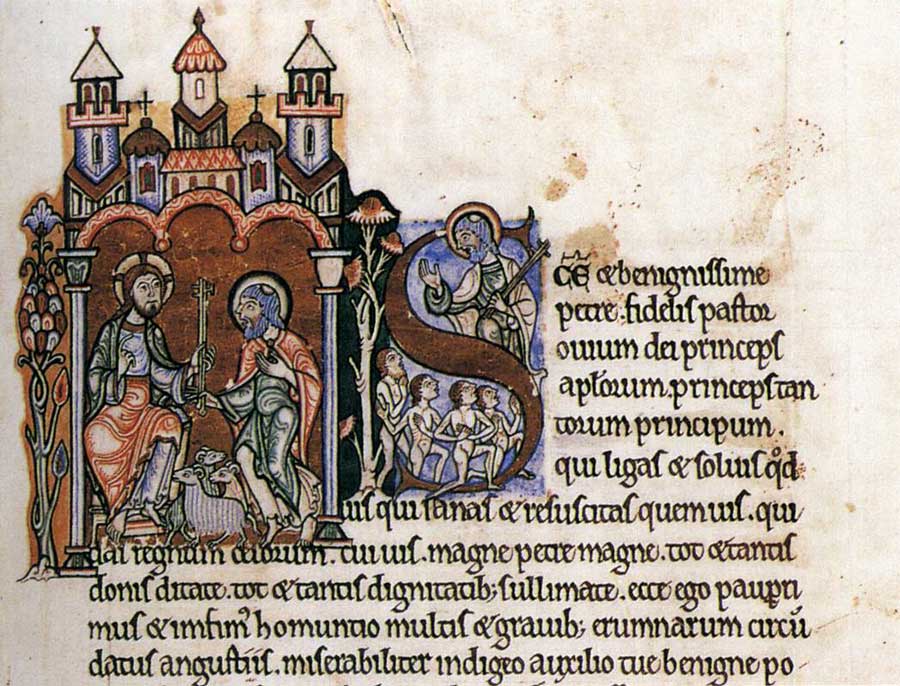 SC̄E & benignissime
petre. fidelis pastor
ouium dei princeps
apłorum. princeps tan
torum principum.
qui ligas & soluis qd̊
uis qui sanas & resuscitas quem uis. qui
das regnum celorum. cui uis. magne petre magne. tot & tantis
donis ditate. tot & tantis dignitatib; sullimate. ecce ego paupri
mus & infim' homuntio multis & grauib; erumnarum circū
datus angustiis. miserabiliter indigeo auxilio tue benigne po-